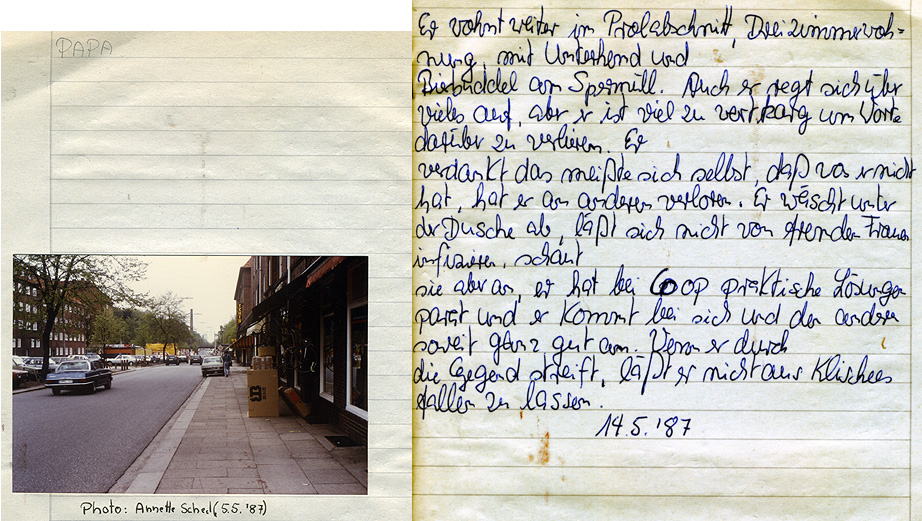 PAPA
Photo: Annette Scheel (5.5.'87)
Er wohnt weiter im Prolabschnitt, Dreizimmerwoh=
nung, mit Unterhemd und
Bierbuddel am Sperrmüll. Auch er regt sich über
vieles auf, aber er ist viel zu wortkarg um Worte
darüber zu verlieren. Er
verdankt das meißte sich selbst, daß was er nicht
hat, hat er an anderen verloren. Er wäscht unter
der Dusche ab, läßt sich nicht von fremden Frauen
infizieren, schaut
sie aber an, er hat bei Coop praktische Lösungen
parat und er kommt bei sich und den anderen
soweit ganz gut an. Wenn er durch
die Gegend streift, läßt er nichts aus Klischees
fallen zu lassen.
14.5.'87